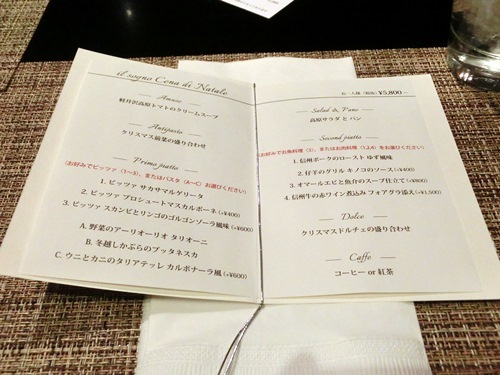 il sogno Cena di Natale
Amuse
軽井沢高原トマトのクリームスープ
Antipasto
クリスマス前菜の盛り合わせ
Primo piatto
(お好みでピッツァ（1~3）、またはパスタ（A~C）お選びください)
1. ピッツァ サカサマルゲリータ
2. ピッツァ プロシュートマスカルポーネ (+¥400)
3. ピッツァ スカンピとリンゴのゴルゴンゾーラ風味 (+¥600)
A. 野菜のアーリオーリオ タリオーニ
B. 冬越しかぶらのプッタネスカ
C. ウニとカニのタリアテッレ カルボナーラ風 (+¥600)
お一人様（税抜）¥5,800-
Salad & Pane
高原サラダ と パン
Second piatto
(お好みでお魚料理（3）、またはお肉料理（1,2,4）をお選びください)
1. 信州ポークのロースト ゆず風味
2. 仔羊のグリル キノコのソース (+¥400)
3. オマールエビと魚介のスープ仕立て (+¥800)
4. 信州牛の赤ワイン煮込み フォアグラ添え (+¥1,500)
Dolce
クリスマスドルチェの盛り合わせ
Caffe
コーヒー or 紅茶